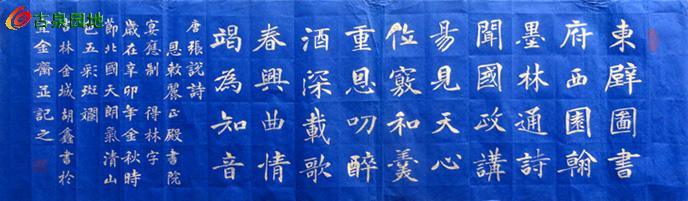 吉泉园地
東壁圖書
府西園翰
墨林通詩
聞國政講
易見天心
位竊和羹
重恩叨醉
酒深載歌
春興曲情
竭為知音
唐張說詩
恩敕麗正殿書院
宴應制 得林字
歲在辛卯年金秋時
節北國天朗氣清山
色五彩斑斕
林金城胡鑫書於
宜金齋並記之